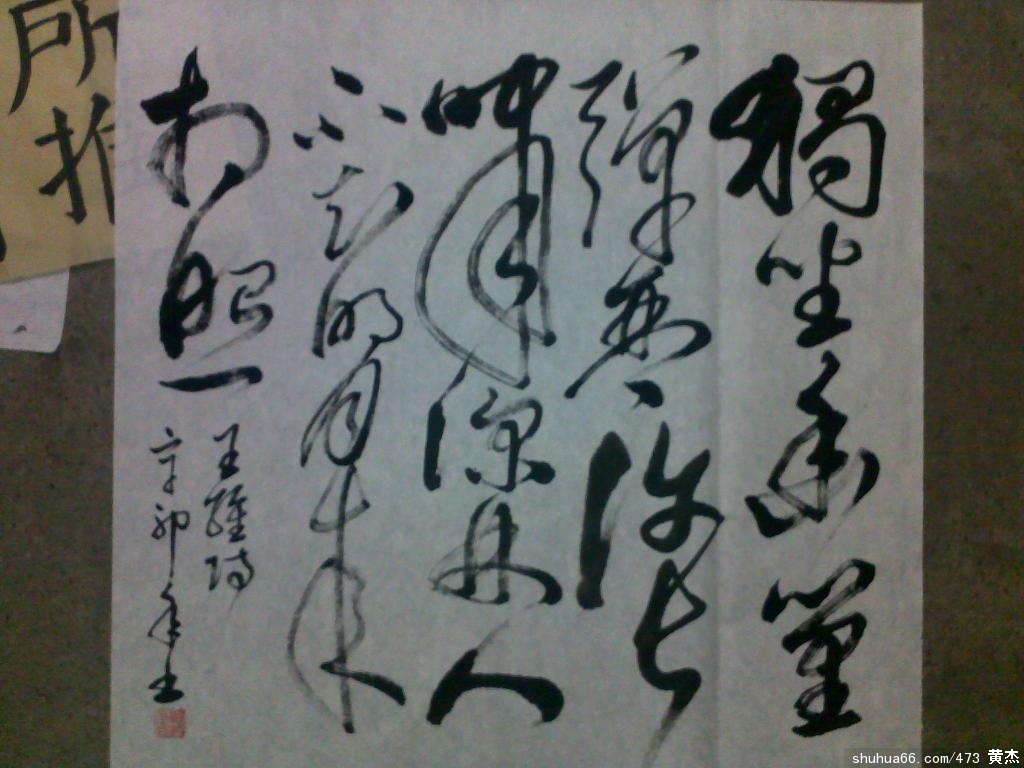 獨坐幽篁
彈琴復長
嘯深林人
不知明月來
相照
王維詩
辛卯年
所推
shuhua66.com/473 黄杰